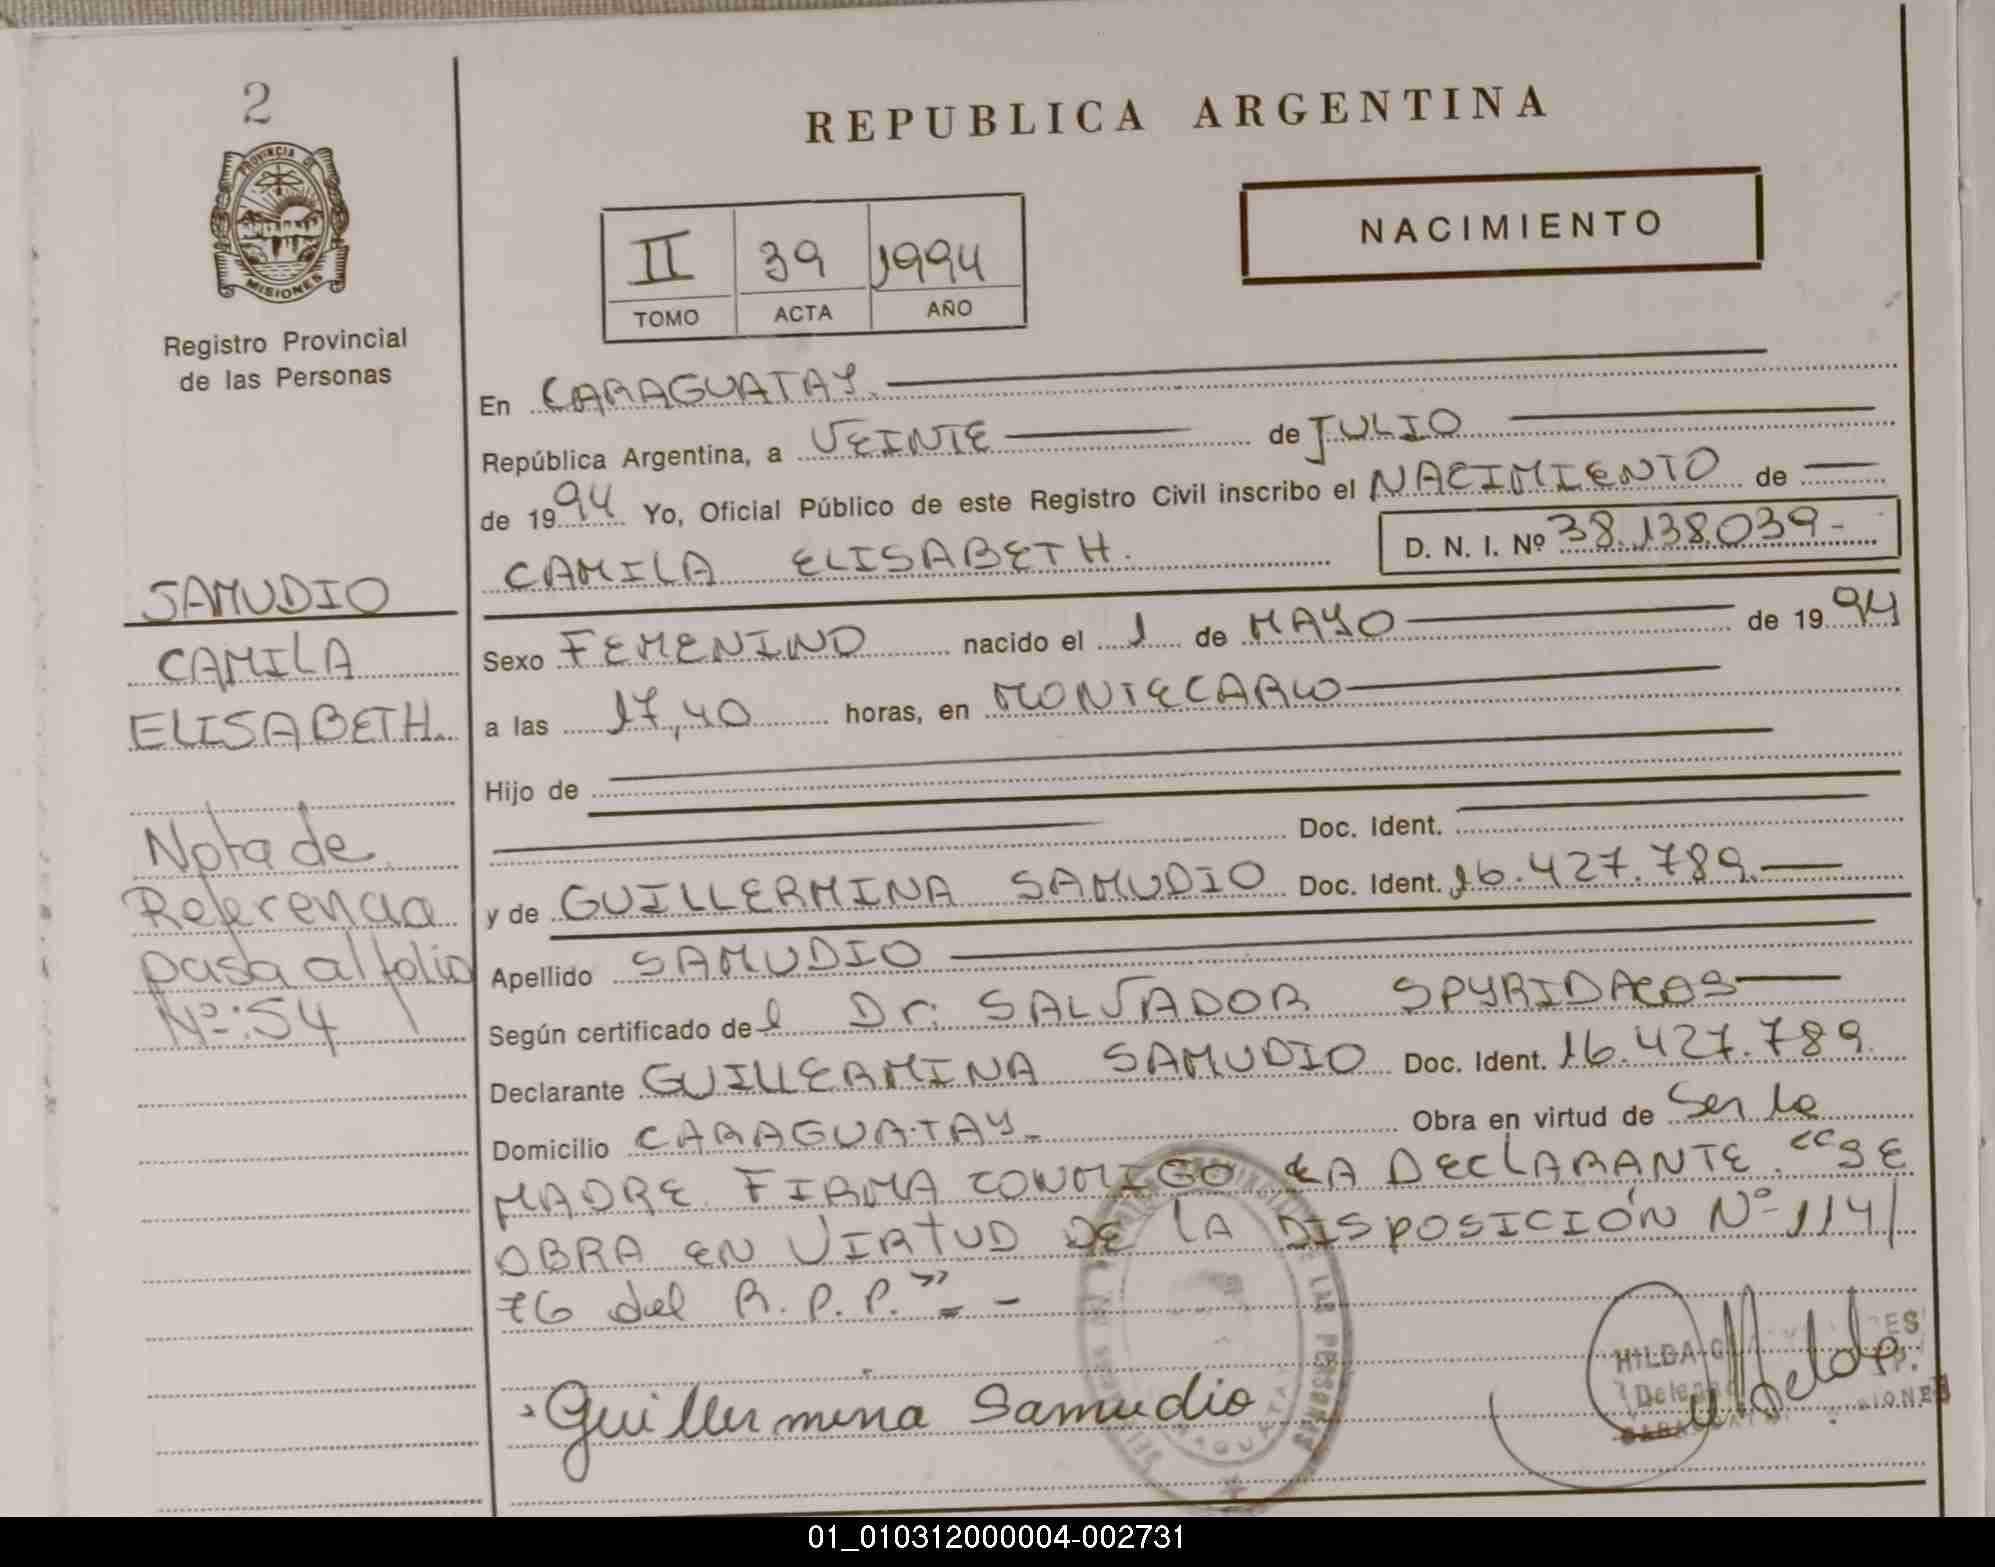 2
PROVINCIA DE
MISIONES
Registro Provincial
de las Personas
SAMUDIO
CAMILA
ELISABETH
Nota de
Referencia
pasa al folio
Nº: 54
REPUBLICA ARGENTINA
NACIMIENTO
II 39 1994
TOMO ACTA AÑO
En CARAGUATAY.
República Argentina, a VEINTE de JULIO
de 1994 Yo, Oficial Público de este Registro Civil inscribo el NACIMIENTO de
CAMILA ELISABETH. D. N. I. Nº 38.138.039-
Sexo FEMENINO nacido el 1 de MAYO de 1994
a las 17,40 horas, en MONTECARLO
Hijo de
Doc. Ident.
y de GUILLERMINA SAMUDIO Doc. Ident. 16.427.789.
Apellido SAMUDIO
Según certificado del Dr. SALVADOR SPYRIDACOS
Declarante GUILLERMINA SAMUDIO Doc. Ident. 16.427.789.
Domicilio CARAGUATAY.- Obra en virtud de Ser la
MADRE. FIRMA CONMIGO LA DECLARANTE. "SE
OBRA EN VIRTUD DE LA DISPOSICIÓN Nº 114/
76 del R.P.P."=-
Guillermina Samudio
HILDA
01_010312000004-002731